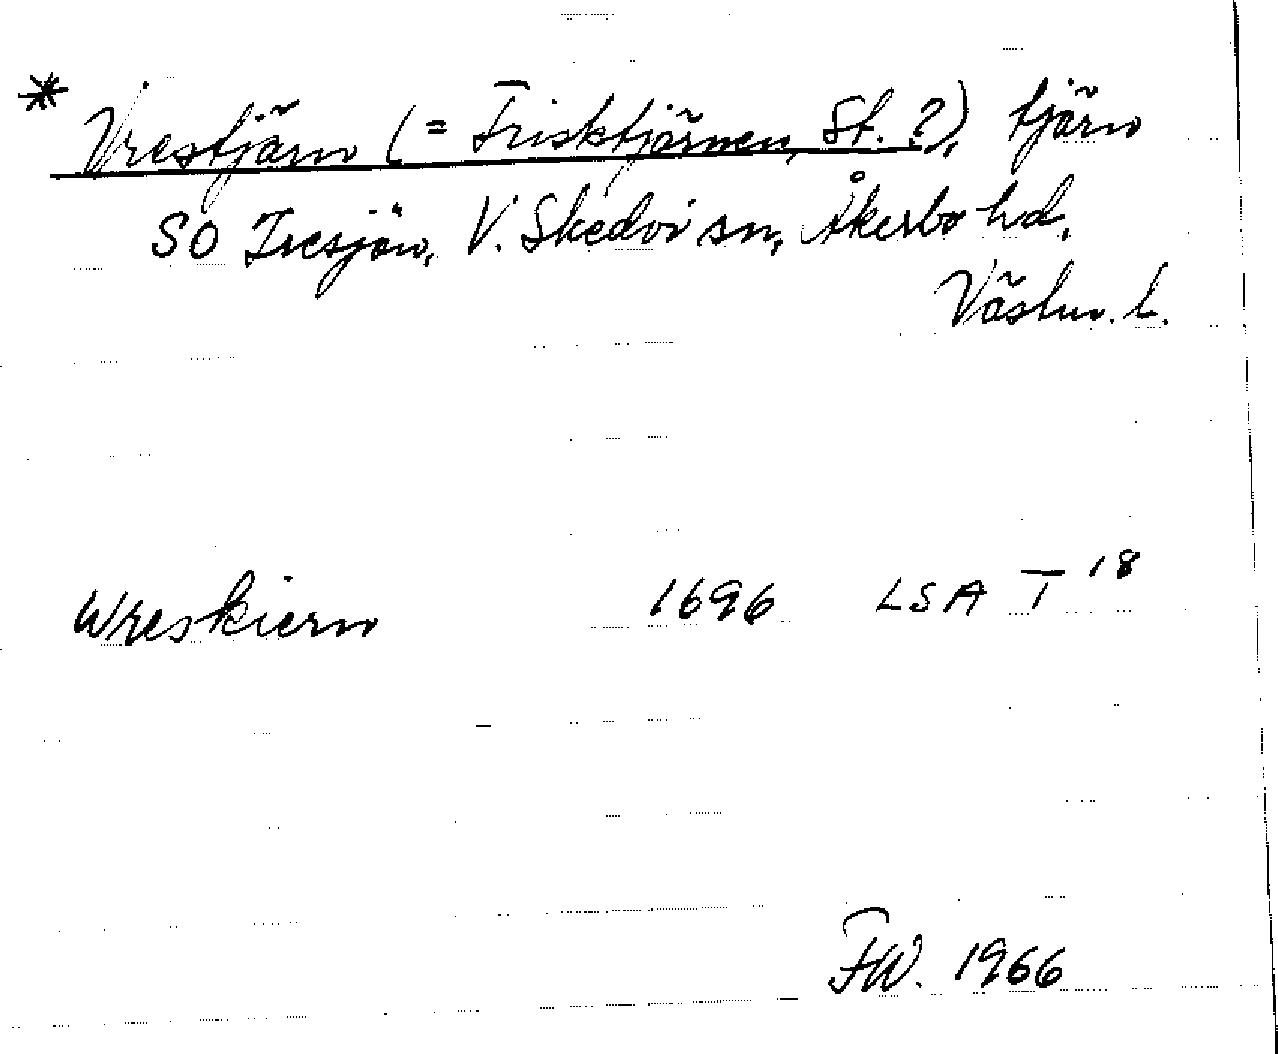 * Vrestjärn (= Frisktjärnen, St. ?), tjärn
SO Tresjön, V. Skedvi sn, Åkerbo hd,
Västm. l.
Wreskiern 1696 LSA T 18
FW. 1966